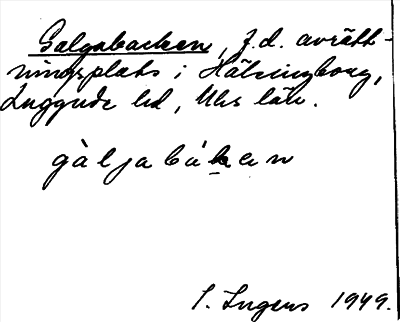 Galgabacken, f.d. avrätt-
ningsplats i Hälsingborg,
Luggude hd, Mhs län.
gàljabákan
S. Ingers 1949.